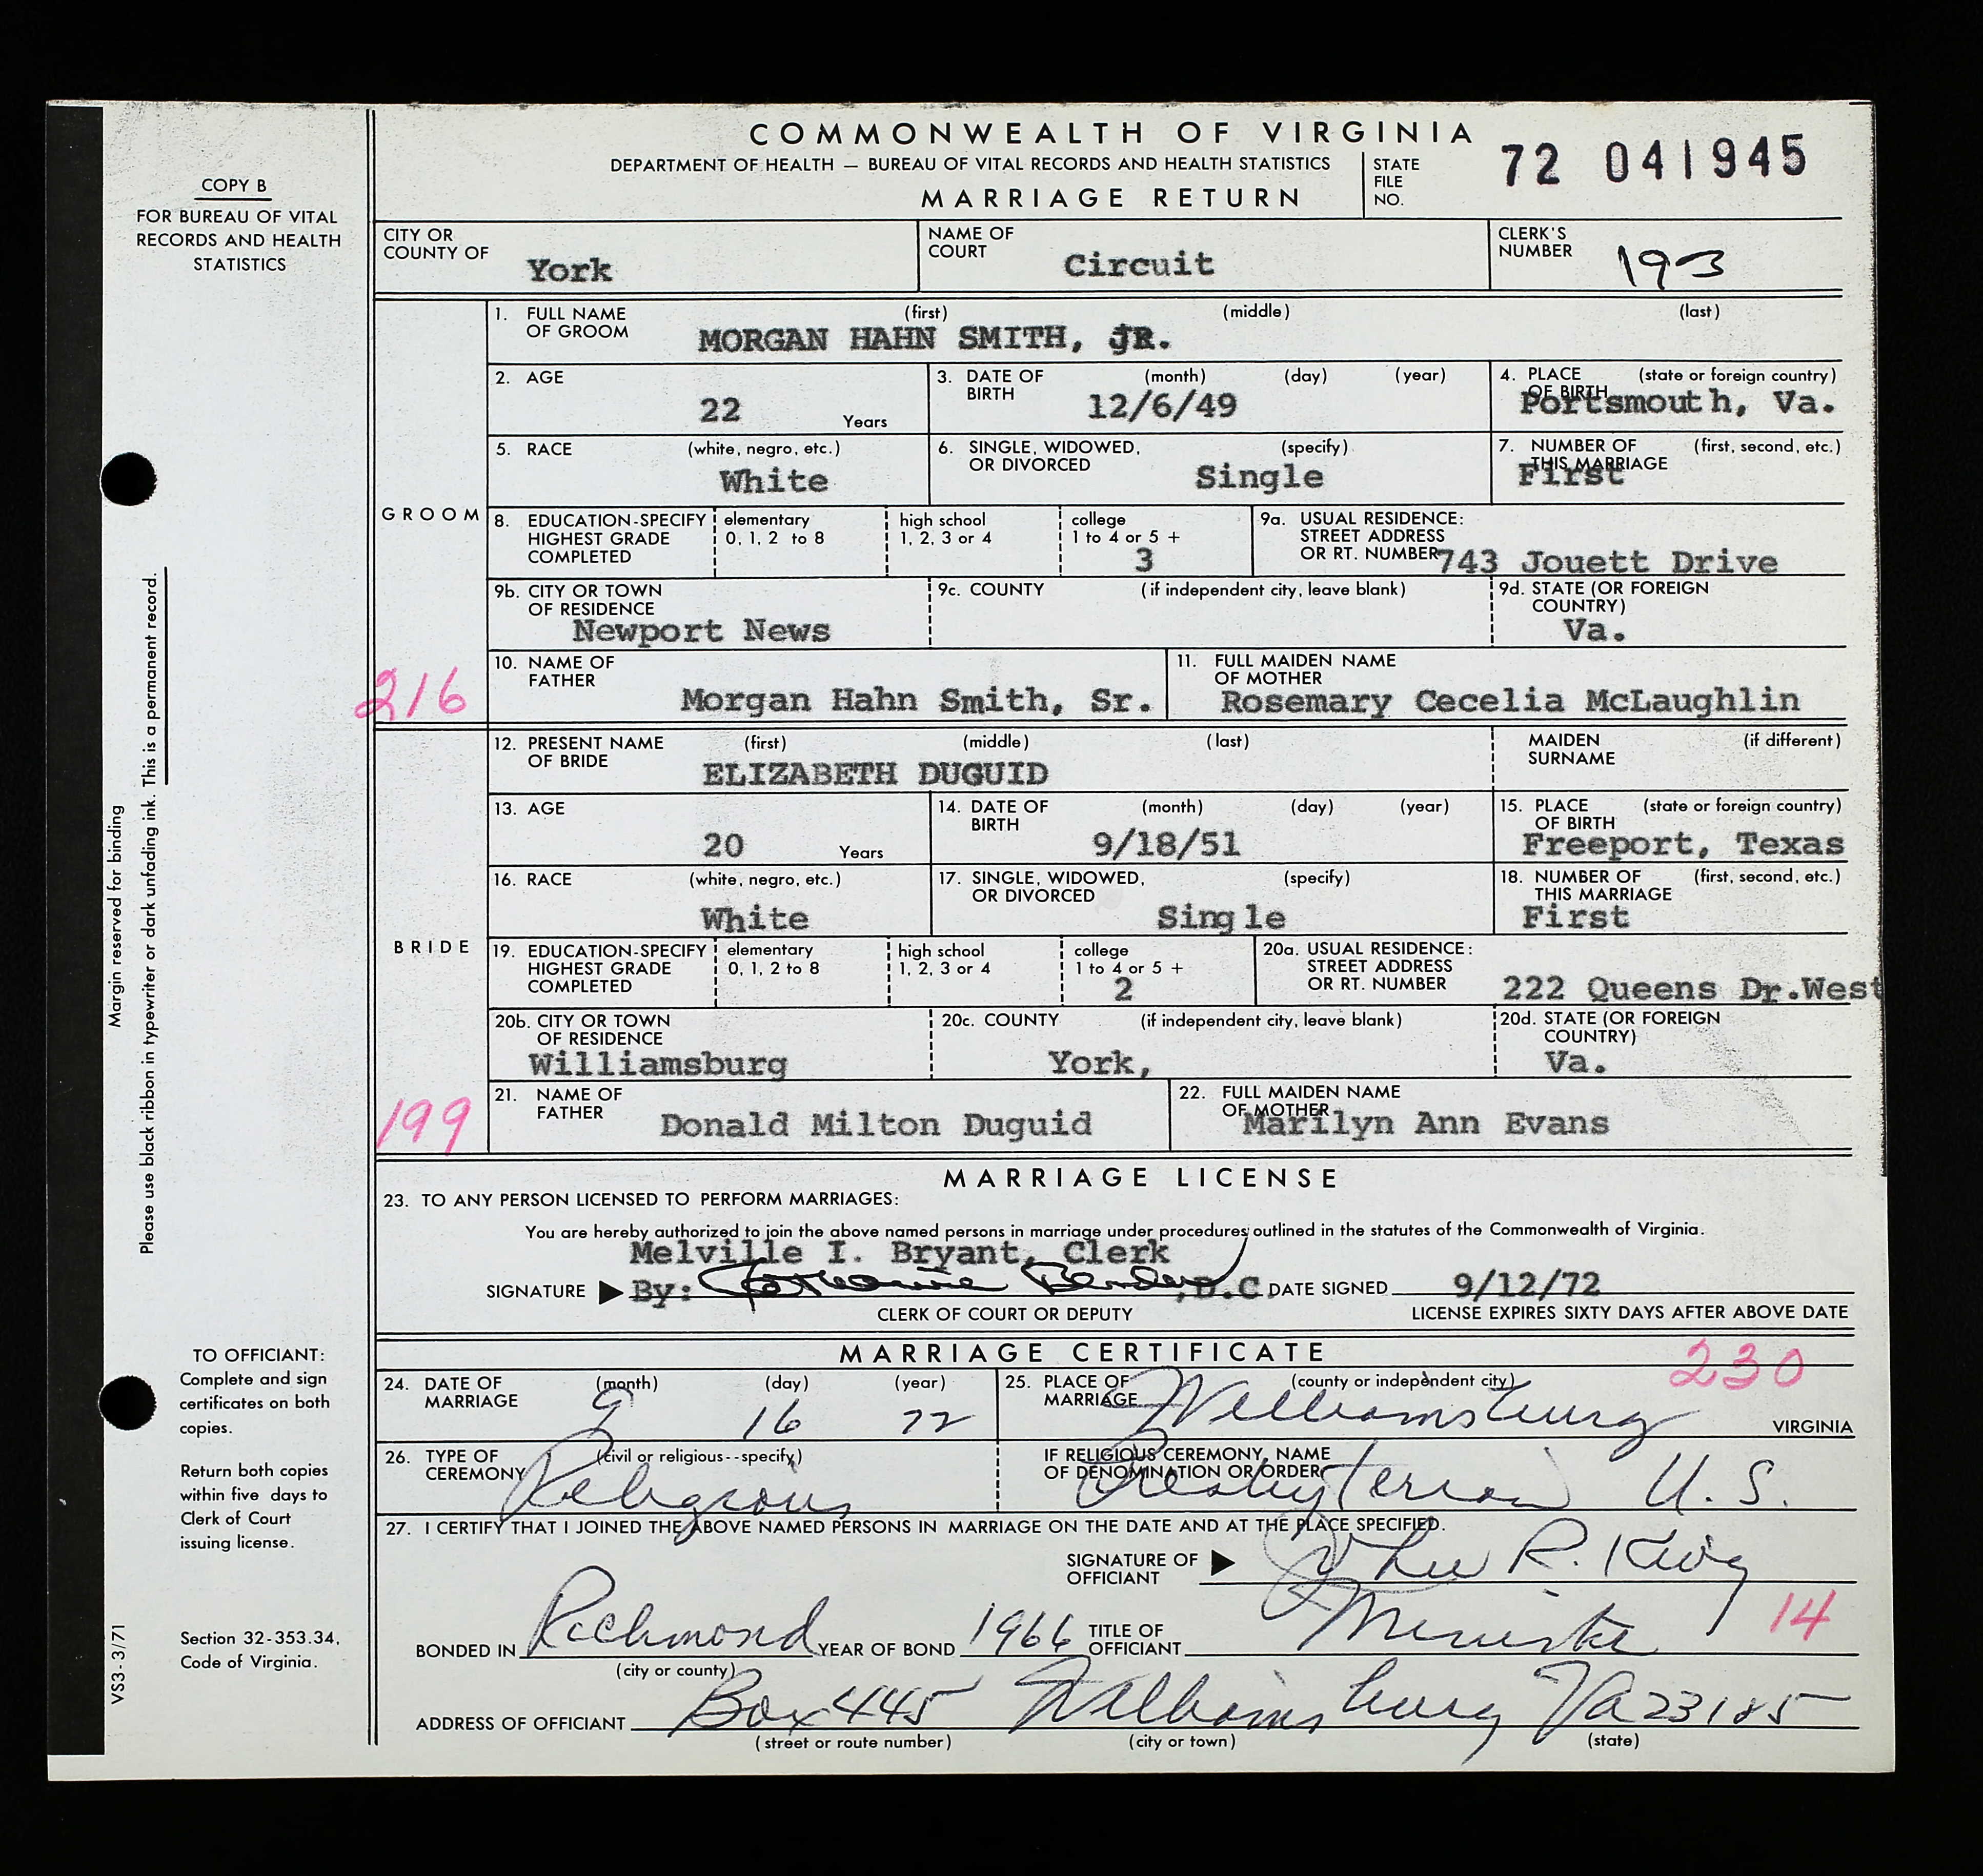 COMMONWEALTH OF VIRGINIA
DEPARTMENT OF HEALTH — BUREAU OF VITAL RECORDS AND HEALTH STATISTICS
MARRIAGE RETURN
STATE FILE NO. 72 041945
COPY B
FOR BUREAU OF VITAL
RECORDS AND HEALTH
STATISTICS
CITY OR COUNTY OF York
NAME OF COURT Circuit
CLERK'S NUMBER 193
GROOM
1. FULL NAME OF GROOM (first) (middle) (last)
MORGAN HAHN SMITH, JR.
2. AGE 22 Years
3. DATE OF BIRTH (month) (day) (year) 12/6/49
4. PLACE OF BIRTH (state or foreign country) Portsmouth, Va.
5. RACE (white, negro, etc.) White
6. SINGLE, WIDOWED, OR DIVORCED (specify) Single
7. NUMBER OF THIS MARRIAGE (first, second, etc.) First
8. EDUCATION-SPECIFY HIGHEST GRADE COMPLETED
elementary 0, 1, 2 to 8
high school 1, 2, 3 or 4
college 1 to 4 or 5 + 3
9a. USUAL RESIDENCE: STREET ADDRESS OR RT. NUMBER 743 Jouett Drive
9b. CITY OR TOWN OF RESIDENCE Newport News
9c. COUNTY (if independent city, leave blank)
9d. STATE (OR FOREIGN COUNTRY) Va.
216
10. NAME OF FATHER Morgan Hahn Smith, Sr.
11. FULL MAIDEN NAME OF MOTHER Rosemary Cecelia McLaughlin
BRIDE
12. PRESENT NAME OF BRIDE (first) (middle) (last) ELIZABETH DUGUID
MAIDEN SURNAME (if different)
13. AGE 20 Years
14. DATE OF BIRTH (month) (day) (year) 9/18/51
15. PLACE OF BIRTH (state or foreign country) Freeport, Texas
16. RACE (white, negro, etc.) White
17. SINGLE, WIDOWED, OR DIVORCED (specify) Single
18. NUMBER OF THIS MARRIAGE (first, second, etc.) First
19. EDUCATION-SPECIFY HIGHEST GRADE COMPLETED
elementary 0, 1, 2 to 8
high school 1, 2, 3 or 4
college 1 to 4 or 5 + 2
20a. USUAL RESIDENCE: STREET ADDRESS OR RT. NUMBER 222 Queens Dr.West
20b. CITY OR TOWN OF RESIDENCE Williamsburg
20c. COUNTY (if independent city, leave blank) York,
20d. STATE (OR FOREIGN COUNTRY) Va.
199
21. NAME OF FATHER Donald Milton Duguid
22. FULL MAIDEN NAME OF MOTHER Marilyn Ann Evans
Margin reserved for binding
Please use black ribbon in typewriter or dark unfading ink. This is a permanent record.
MARRIAGE LICENSE
23. TO ANY PERSON LICENSED TO PERFORM MARRIAGES:
You are hereby authorized to join the above named persons in marriage under procedures outlined in the statutes of the Commonwealth of Virginia.
Melville I. Bryant, Clerk
SIGNATURE ▶ By: , D.C. DATE SIGNED 9/12/72
CLERK OF COURT OR DEPUTY
LICENSE EXPIRES SIXTY DAYS AFTER ABOVE DATE
MARRIAGE CERTIFICATE
230
24. DATE OF MARRIAGE (month) (day) (year) 9 16 72
25. PLACE OF MARRIAGE (county or independent city) Williamsburg VIRGINIA
26. TYPE OF CEREMONY (civil or religious--specify) Religious
IF RELIGIOUS CEREMONY, NAME OF DENOMINATION OR ORDER Presbyterian U. S.
27. I CERTIFY THAT I JOINED THE ABOVE NAMED PERSONS IN MARRIAGE ON THE DATE AND AT THE PLACE SPECIFIED.
SIGNATURE OF OFFICIANT ▶ R. King
BONDED IN Richmond (city or county) YEAR OF BOND 1966 TITLE OF OFFICIANT Minister
14
ADDRESS OF OFFICIANT Box 445 Williamsburg Va 23185
(street or route number) (city or town) (state)
TO OFFICIANT:
Complete and sign
certificates on both
copies.
Return both copies
within five days to
Clerk of Court
issuing license.
Section 32-353.34,
Code of Virginia.
VS3-3/71